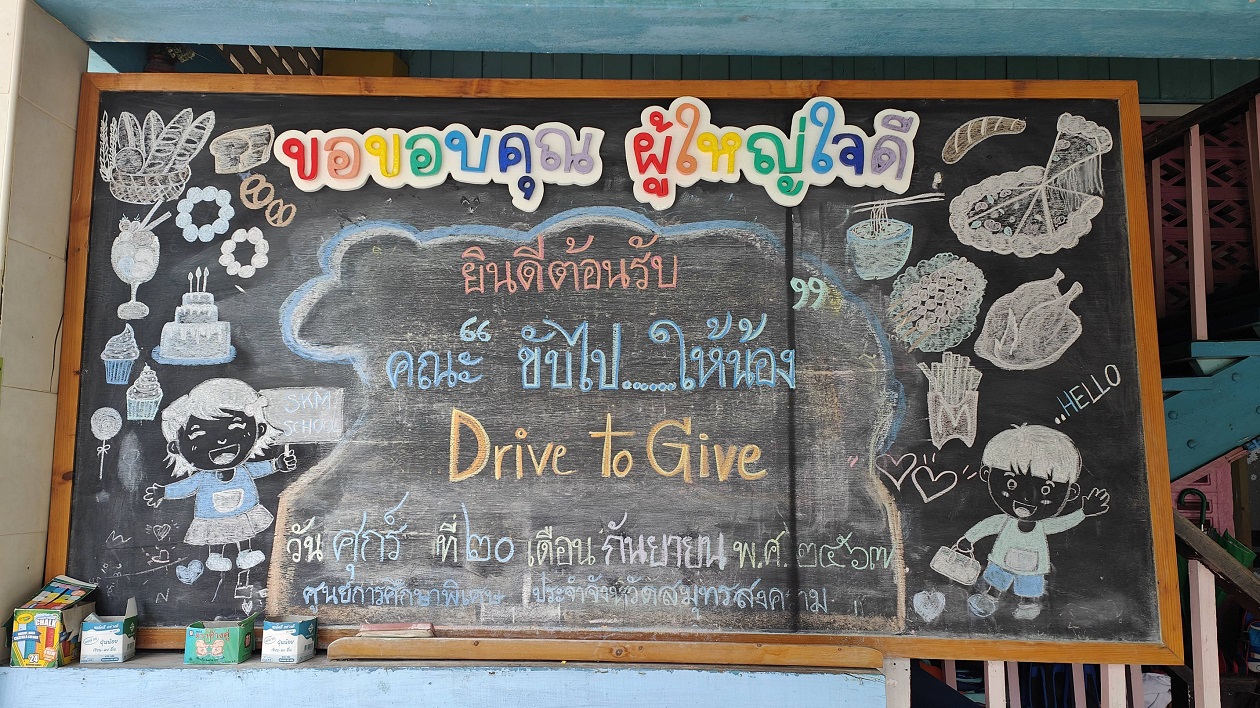 ขอขอบคุณ ผู้ใหญ่ใจดี
ยินดีต้อนรับ
คณะ “ ขับไป......ให้น้อง ”
Drive to Give
วัน ศุกร์ ที่ ๒๐ เดือน กันยายน พ.ศ. ๒๕๖๗
ศูนย์การศึกษาพิเศษ ประจำจังหวัดสมุทรสงคราม
SKM
SCHOOL
..HELLO
CHALK
24